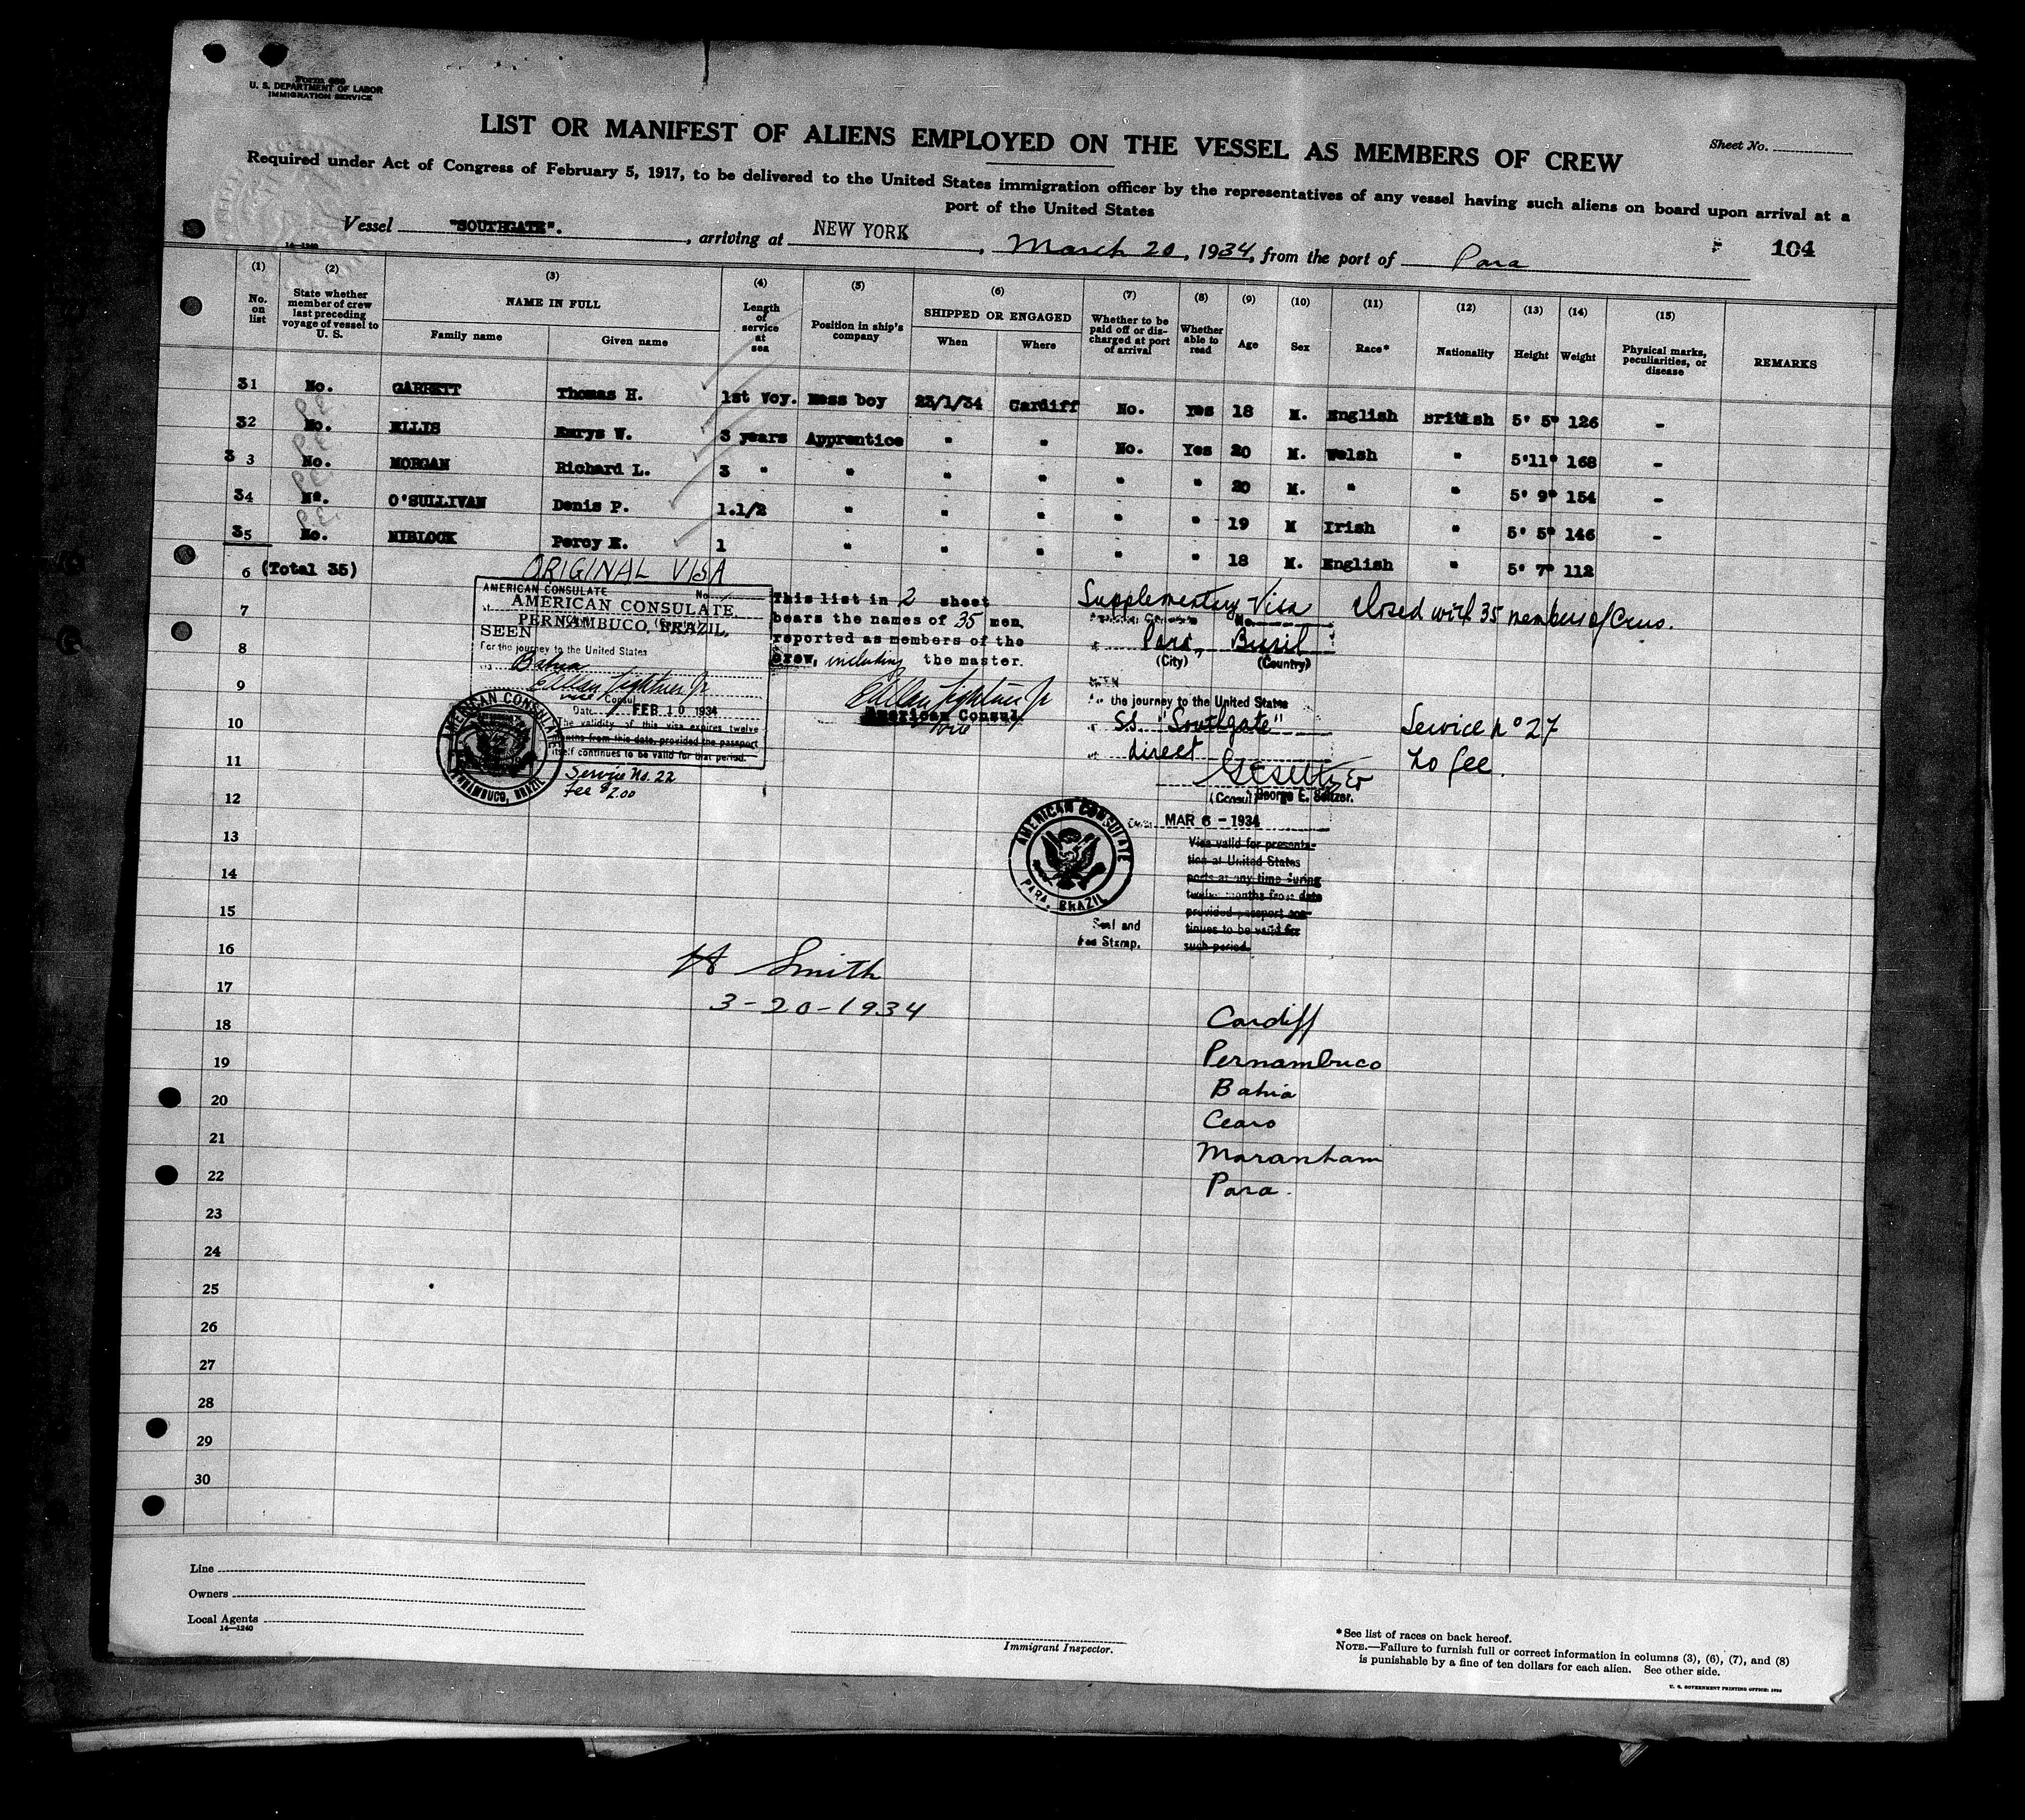 Form 680
U. S. DEPARTMENT OF LABOR
IMMIGRATION SERVICE
LIST OR MANIFEST OF ALIENS EMPLOYED ON THE VESSEL AS MEMBERS OF CREW
Sheet No.
Required under Act of Congress of February 5, 1917, to be delivered to the United States immigration officer by the representatives of any vessel having such aliens on board upon arrival at a
port of the United States
Vessel "SOUTHGATE". , arriving at NEW YORK , March 20 , 1934, from the port of Para
104
14—1240
(1) (2) (3) (4) (5) (6) (7) (8) (9) (10) (11) (12) (13) (14) (15)
No. on list
State whether member of crew last preceding voyage of vessel to U. S.
NAME IN FULL
Family name
Given name
Length of service at sea
Position in ship's company
SHIPPED OR ENGAGED
When
Where
Whether to be paid off or discharged at port of arrival
Whether able to read
Age
Sex
Race*
Nationality
Height
Weight
Physical marks, peculiarities, or disease
REMARKS
31 No. GARRETT Thomas H. 1st Voy. Mess boy 23/1/34 Cardiff No. Yes 18 M. English British 5' 5" 126 -
32 No. ELLIS Emrys W. 3 years Apprentice " " No. Yes 20 M. Welsh " 5'11" 168 -
33 No. MORGAN Richard L. 3 " " " " " " 20 M. " " 5' 9" 154 -
34 No. O'SULLIVAN Denis P. 1.1/2 " " " " " 19 M Irish " 5' 5" 146 -
35 No. NIBLOCK Percy E. 1 " " " " " 18 M. English " 5' 7" 112
6 (Total 35)
ORIGINAL VISA
AMERICAN CONSULATE No.
AMERICAN CONSULATE,
PERNAMBUCO, BRAZIL,
SEEN
For the journey to the United States
Bahia
E Allan Lightner Jr
Vice Consul
Date FEB 10 1934
The validity of this visa expires twelve
months from this date, provided the passport
itself continues to be valid for that period.
Service No. 22
Fee $2.00
AMERICAN CONSULATE
PERNAMBUCO, BRAZIL
This list in 2 sheet
bears the names of 35 men,
reported as members of the
Crew, including the master.
E Allan Lightner Jr
American Consul.
Vice
Supplementary Visa closed with 35 members of Crew.
Para, Brazil
(City) (Country)
SEEN
the journey to the United States
SS "Southgate"
direct
Service No 27
No fee.
(Consul) George E. Seltzer.
MAR 6 - 1934
AMERICAN CONSULATE
PARA, BRAZIL
Visa valid for presenta-
tion at United States
ports at any time during
twelve months from date
provided passport con-
tinues to be valid for
such period.
Seal and
Fee Stamp.
7
8
9
10
11
12
13
14
15
16
17
18
19
20
21
22
23
24
25
26
27
28
29
30
H Smith
3-20-1934
Cardiff
Pernambuco
Bahia
Ceara
Maranham
Para.
Line
Owners
Local Agents
14—1240
Immigrant Inspector.
*See list of races on back hereof.
NOTE.—Failure to furnish full or correct information in columns (3), (6), (7), and (8)
is punishable by a fine of ten dollars for each alien. See other side.
U. S. GOVERNMENT PRINTING OFFICE: